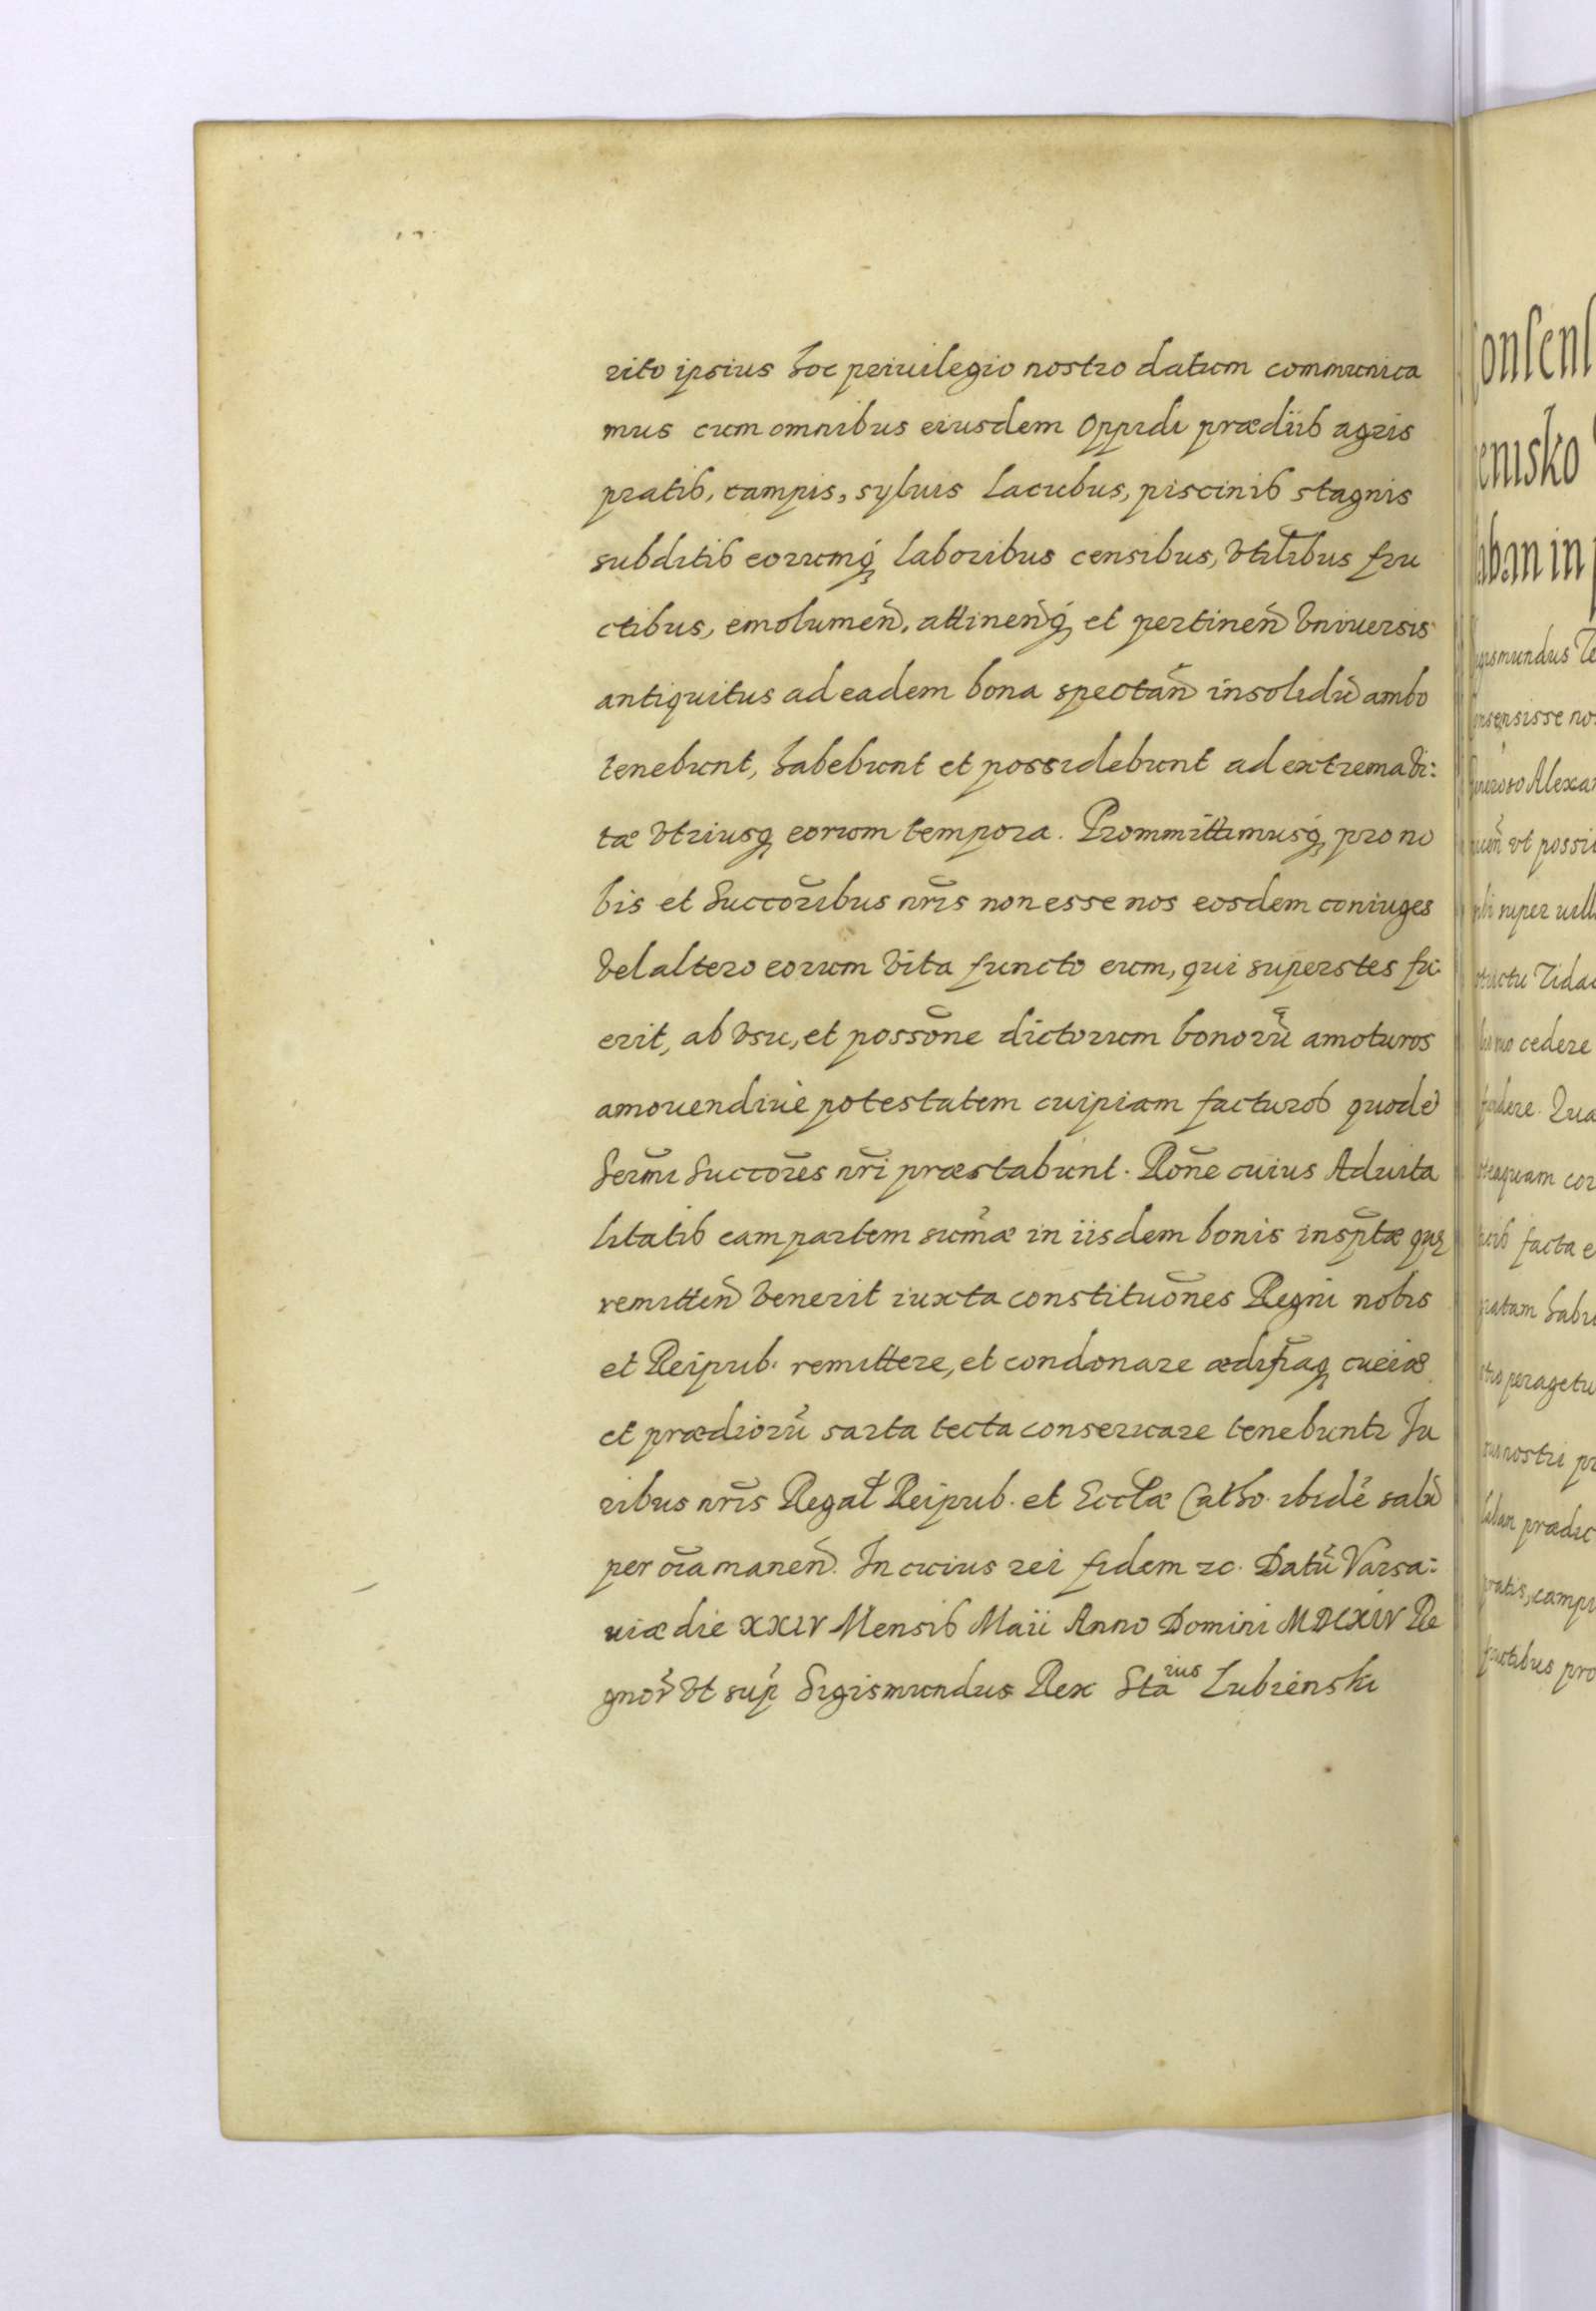 rito ipsius hoc priuilegio nostro datum communica
mus cum omnibus eiusdem Oppidi prædiis agris
pratis, campis, syluis lacubus, piscinis stagnis
subditis eorumq́ꝫ laboribus censibus, vtil̃ibus fru
ctibus, emolumeñ, attineñq́ꝫ et pertineñ vniuersis
antiquitus ad eadem bona spectañ insolidũ ambo
tenebunt, habebunt et possidebunt ad extrema vi:
tæ vtriusqꝫ eorum tempora. Prommittimusq́ꝫ pro no
bis et Succõribus nr̃is non esse nos eosdem coniuges
vel altero eorum vita functo eum, qui superstes fu
erit, ab vsu, et possõne dictorum bonorũ amoturos
amouendiuè potestatem cuipiam facturos quodẽ
Serm̃i Succõres nr̃i præstabunt. Rõne cuius Aduita
litatis eam partem sum̃æ in iisdem bonis insp̃tæ quæ
remitteñ venerit iuxta constituõnes Regni nobis
et Reipub. remittere, et condonare ædifi̴aqꝫ
et prædiorũ sarta tecta conseruare tenebuntr Iu
ribus nr̃is Regal̃ Reipub. et Eccl̃æ Catho. ibidẽ salũ
per oĩa maneñ. In cuius rei fidem ꝛc. Datũ Varsa:
uiæ die XXIV Mensis Maii Anno Domini MDCXIV Re
gnoř vt sup̃ Sigismundus Rex Staius Lubienski
onsens
enisko
aban in p
gismundus Te
nsensisse no
eneroso Alexa
ueñ vt possi
bi super vill
strictu Tida
cedere
Qua
eaquam cor
facta e
ratam habi
peragetu
nostri pr
laban prædic
pratis, campi
fructibus pro